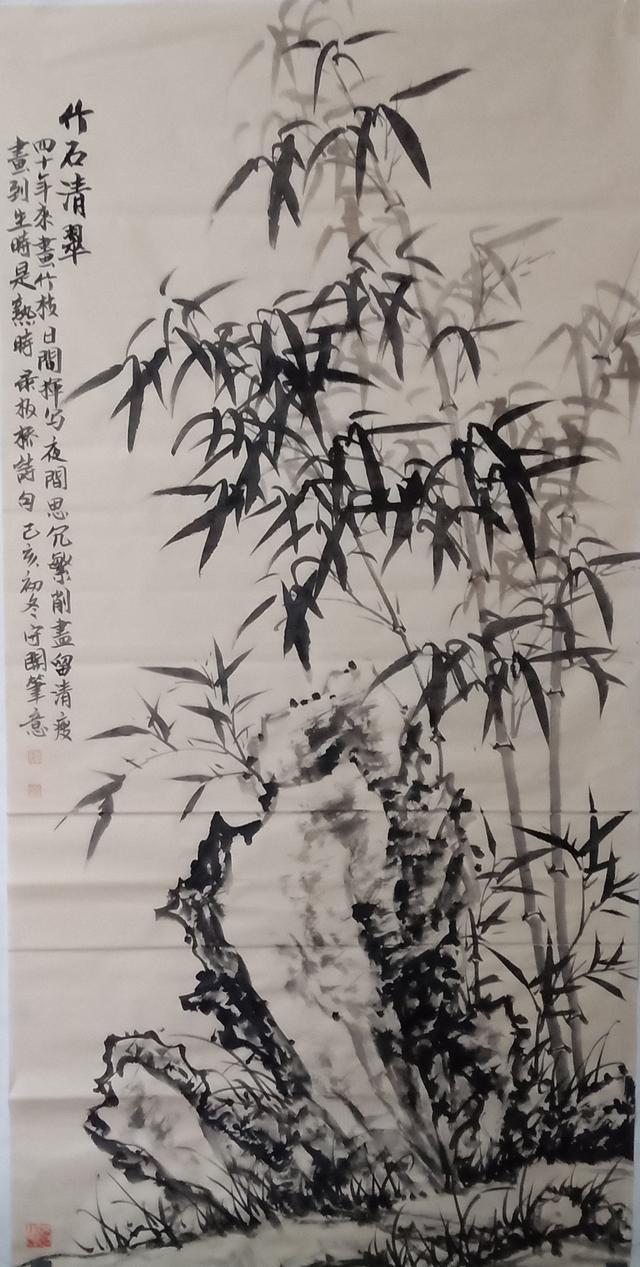 竹石清翠
四十年来畫竹枝日間揮写夜間思冗繁削盡留清瘦
畫到生時是熟時录板桥詩句己亥初冬守開筆意